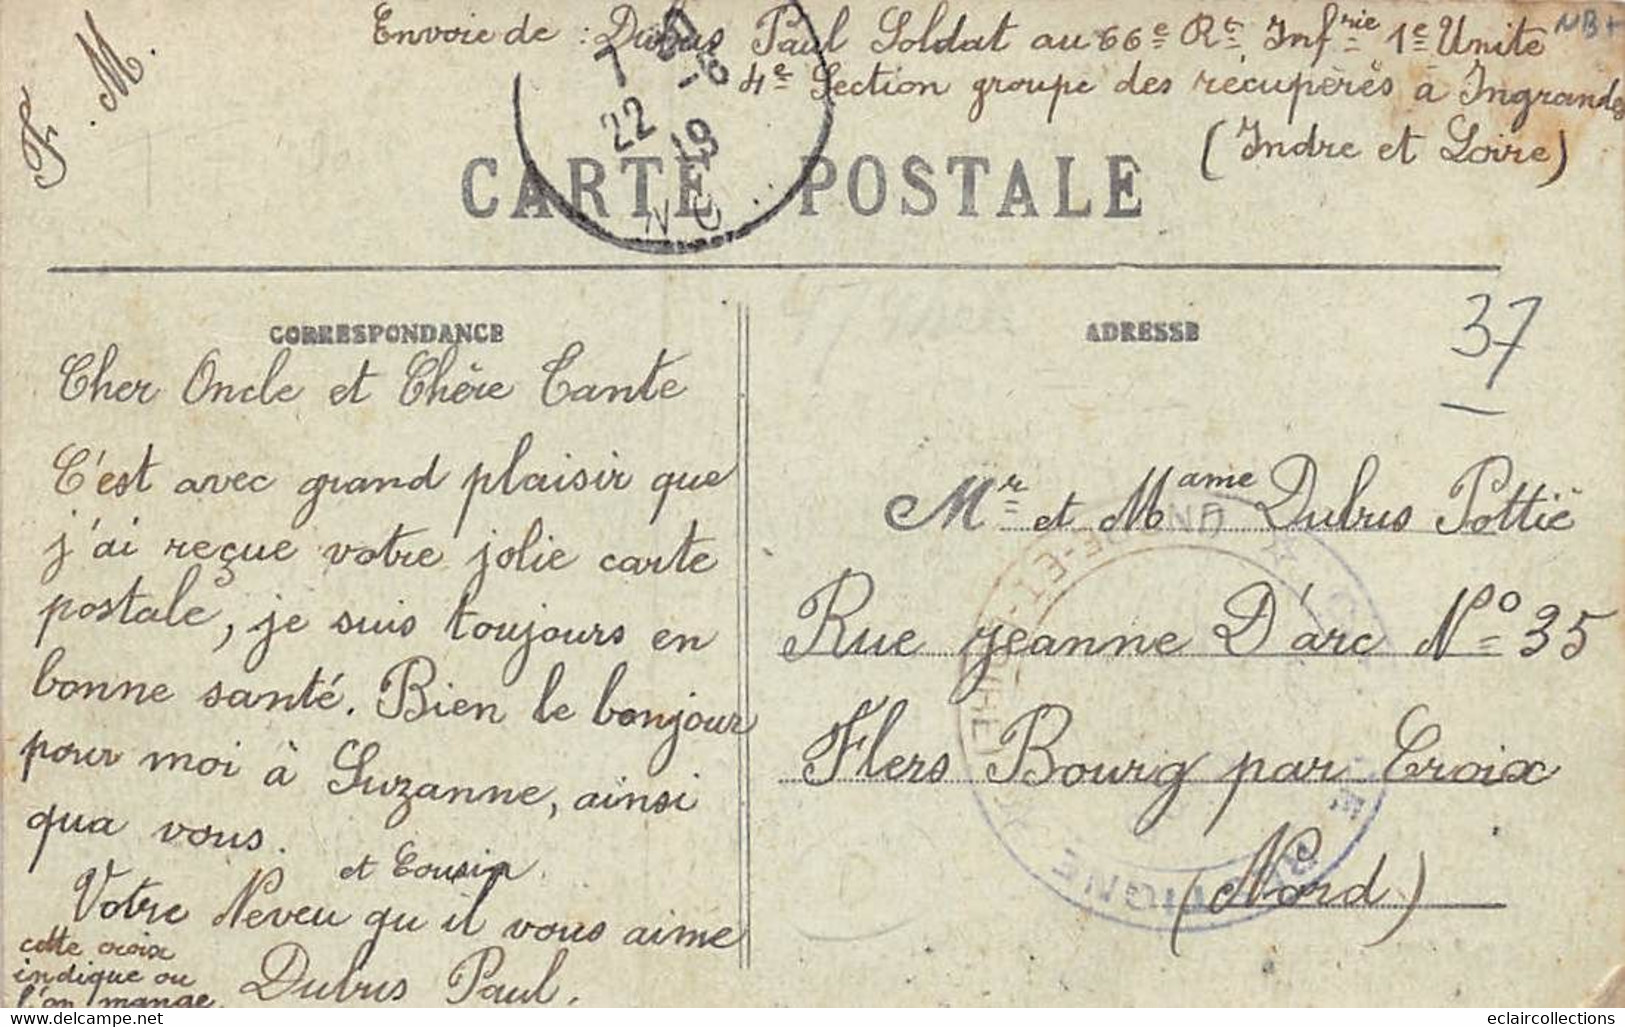 Envoie de : Dubus Paul Soldat au 66e Rt Infrie 1e Unite
4e Section groupe des récupérés à Ingrandes
(Indre et Loire)
F. M.
22 19
CARTE POSTALE
CORRESPONDANCE
ADRESSE
37
Cher Oncle et Chère Tante
C'est avec grand plaisir que
j'ai reçue votre jolie carte
postale, je suis toujours en
bonne santé. Bien le bonjour
pour moi à Suzanne, ainsi
qua vous.
et Cousin
Votre Neveu qu il vous aime
Dubus Paul.
cette croix
indique ou
l'on mange.
Mr et Mame Dubus Pottié
Rue jeanne D'arc No 35
Flers Bourg par Croix
(Nord)
www.delcampe.net
eclaircollections